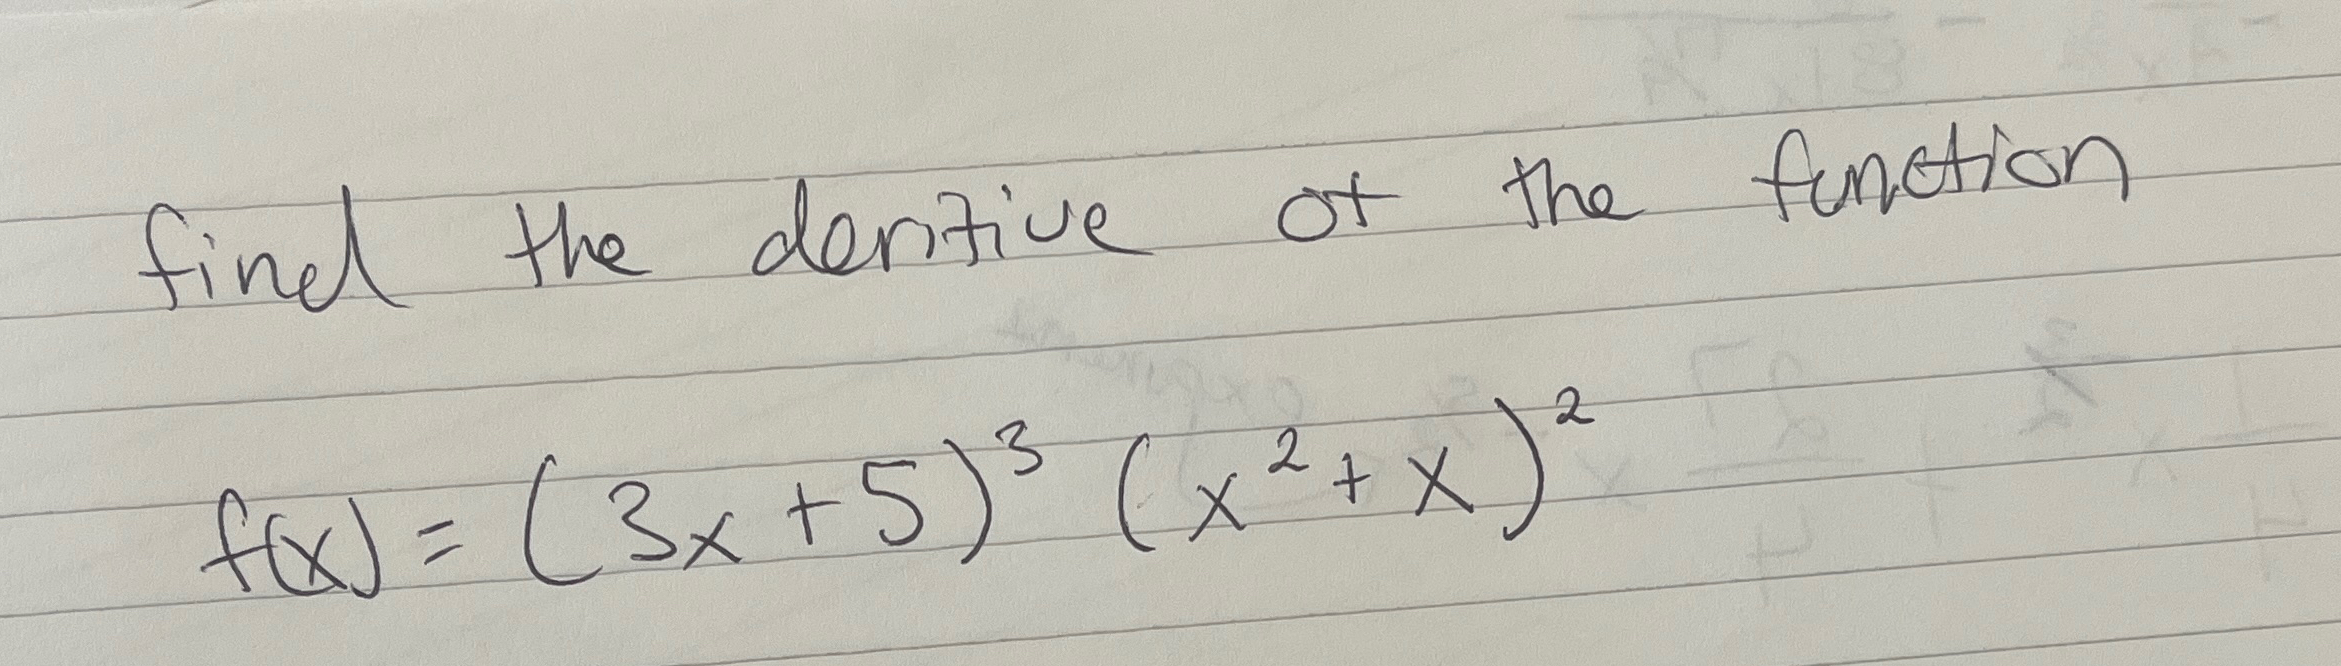 find the deritive of the function
f(x) = (3x + 5)³ (x² + x)²